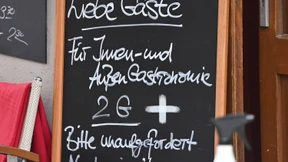 Liebe Gäste
Für Innen- und
Außen Gastronomie
2G +
Bitte unaufgefordert